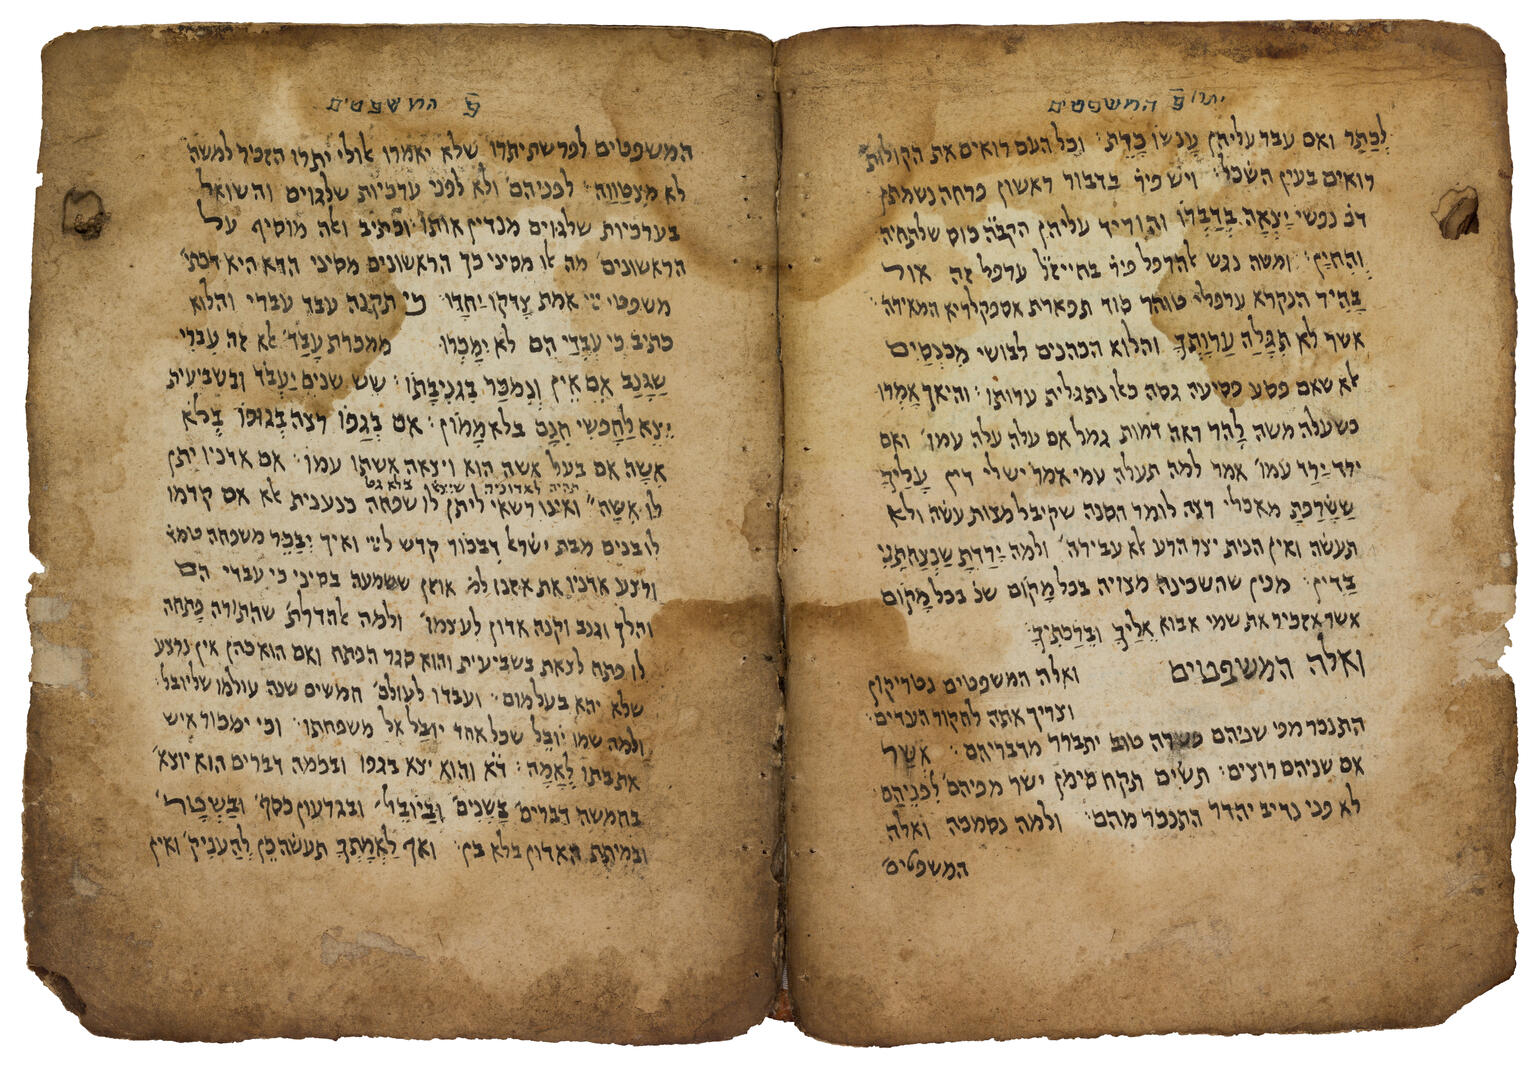 יתרו פ המשפטים
לכתר ואם עבד עליהן ענשו כדת׃ וכל העם רואים את הקולות
רואים בעין השכל׃ ויש פיר׳ בדבור ראשון פרחה נשמתן
דכ׳ נפשי יצאה בדברו והוריד עליהן הקב״ה כוס שלתחיה
והחיין׃ ומשה נגש אל הרפל פיר׳ בחייאל ערפל זה אור
בהיר הנקרא ערפלי טוהר סוד תפארת אספקלריא המאירה׃
אשר לא תגלה ערותך והלוא הכהנים לבושי מכנסים
לא שאם פסע פסיעה גסה כאו נתגלית ערותו׃ והיאך אמרו
כשעלה משה להר ראה דמות גמל אם עלה עלה עמו׳ ואם
ירד ירד עמו׳ אמר למה תעלה עמי אמר ישלי דין עליך
ששרפת מאכלי רצה לומר הסנה שקיבל מצות עשה ולא
תעשה ואין הנית יצר הרע לא עבירה׳ ולמה ירדת שנצחתני
בדין׃ מכין שהשכינה מצויה בכל מקום שנ׳ בכל מקום
אשר אזכיר את שמי אבוא אליך וברכתיך׃
ואלה המשפטים ואלה המשפטים נטריקון
וצריך אתה לחקור העדים׃
התנכר מפי שניהם פשרה טוב יתברר מדבריהם׃ אשר
אם שניהם רוצים׃ תשים תקח סימן ישר מפיהם׳ לפניהם
לא פני נדיב יהדר התנכר מהם׃ ולמה נסמכה ואלה
המשפטים׳
פ המשפטים
המשפטים לפרשת יתרו׳ שלא יאמרו אולי יתרו הזכיר למשה׳
לא מנטווה׃ לפניהם׳ ולא לפני ערכיות שלגוים והשואל
בערכיות שלגוים מנדין אותו׃ וכתיב ואלה מוסיף על
הראשונים׳ מה אלו מסיני כך הראשונים מסיני הדא היא דכתי׳
משפטי ייי אמת צדקו יחדו׃ כי תקנה עבד עברי והלוא
כתיב כי עבדי הם לא ימכרו ממכרת עבד׳ לא זה עברי
שגנב אם אין ונמכר בגניבתו׃ שש שנים יעבד ובשביעית
יצא לחפשי חנם בלא ממון׃ אם בגפו רצה בגופו בלא
אשה אם בעל אשה הוא ויצאה אשתו עמו׃ אם אדניו יתן
תהיה לאדוניה שיוצא בלא גט
לו אשה״ ואינו רשאי ליתן לו שפחה כנענית לא אם קדמו
לו בנים מבת ישראל דבכור קדש לייי ואיך יבכר משפחה טומ׳
ורצע אדניו את אזנו למ׳ אוזן ששמעה בסיני כי עבדי הם
והלך וגנב וקנה אדון לעצמו׳ ולמה אל הדלת׳ שהתורה פתחה
לו פתח לצאת בשביעית והוא סגר הפתח ואם הוא כהן אין נרצע
שלא יהא בעל מום׃ ועבדו לעולם׳ חמשים שנה עולמו שליובל׃
ולמה שמו יובל שכל אחד יובל אל משפחתו׃ וכי ימכור איש
את בתו לאמה׃ ד״א והוא יצא בגפו ובכמה דברים הוא יוצא׳
בחמשה דברים׳ בשנים׳ וביובל׳ ובגרעון כסף׳ ובשטר׳
ובמיתת האדון בלא בן׃ ואף לאמתך תעשה כן להעניק׳ ואין